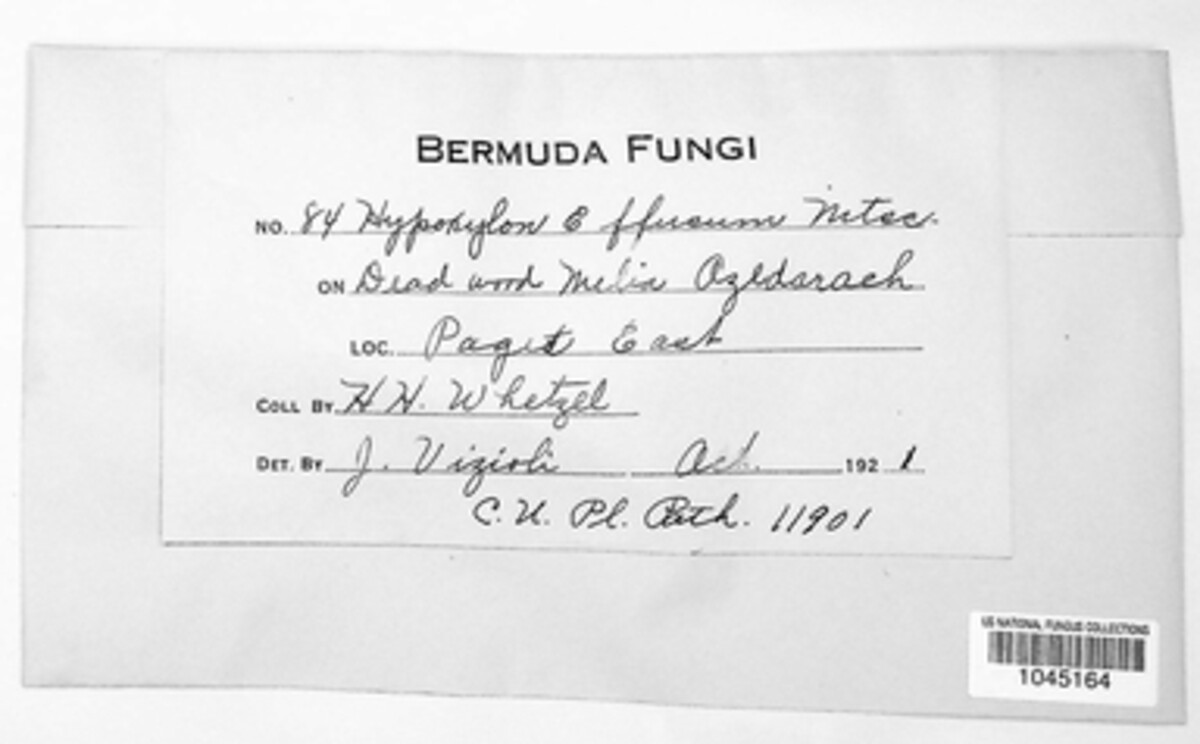 BERMUDA FUNGI
NO. 84 Hypoxylon Effusum Nitsc.
ON Dead wood Melia Azedarach
LOC. Paget East
COLL BY H H. Whetzel
DET. BY J. Vizioli Oct. 1921
C. U. Pl. Path. 11901
US NATIONAL FUNGUS COLLECTIONS
1045164